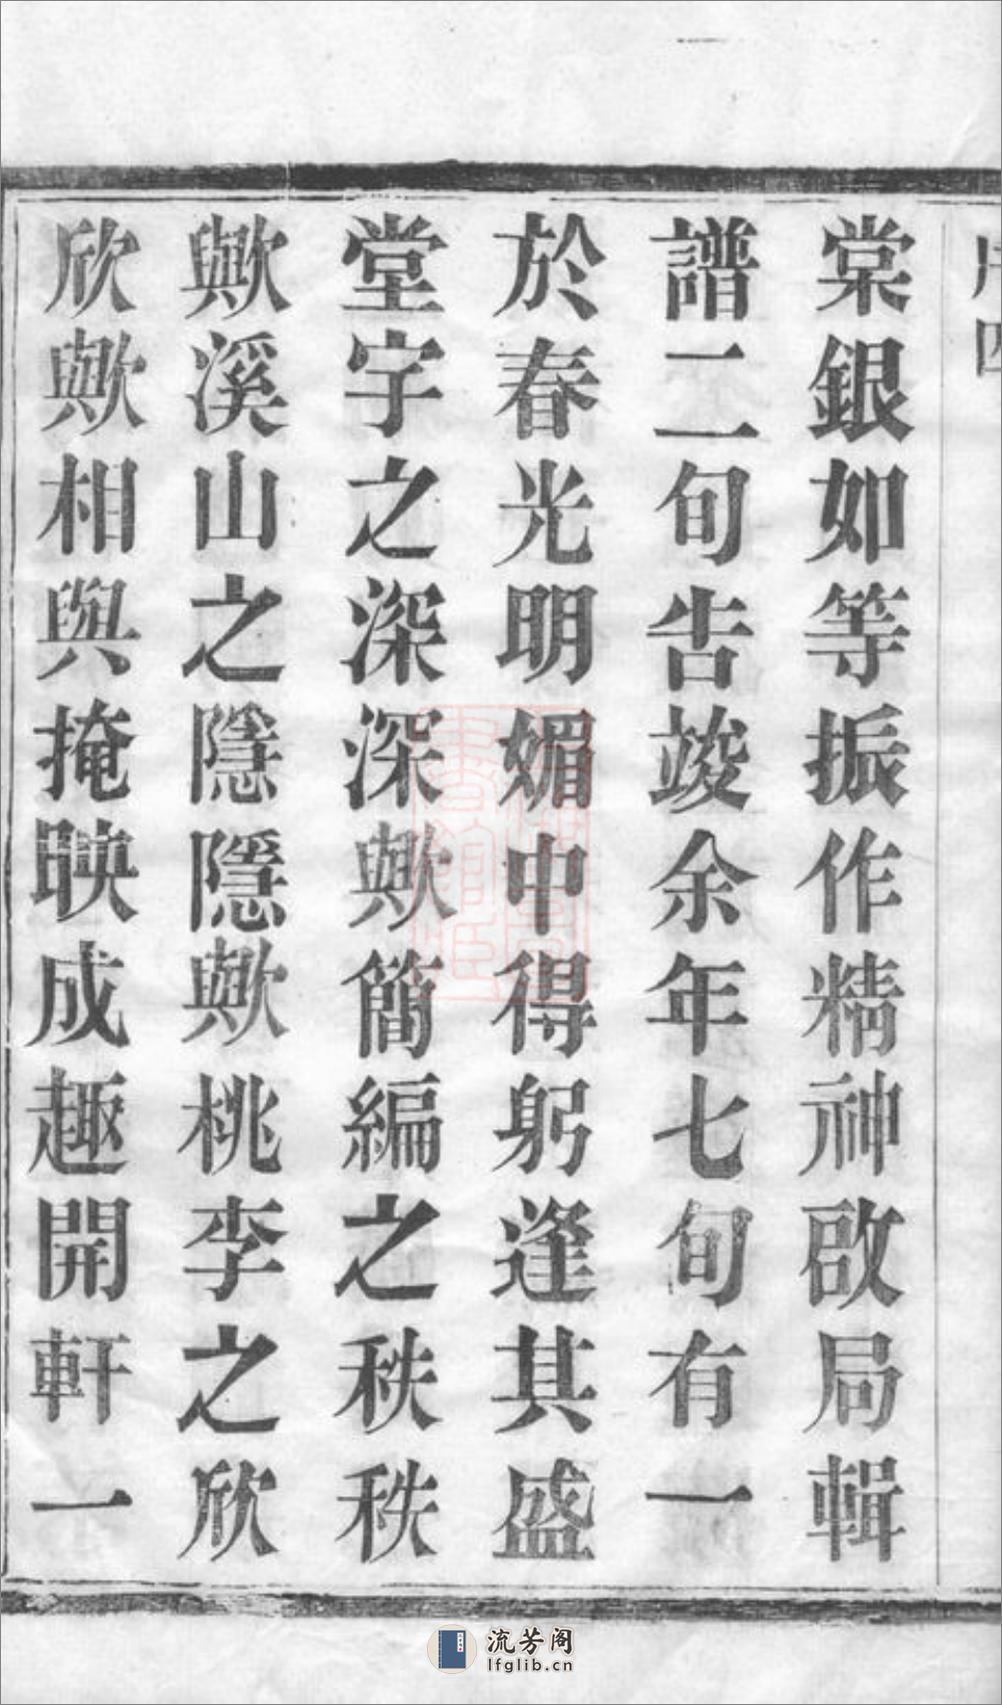 序四
棠銀如等振作精神啟局輯
譜二旬告竣余年七旬有一
於春光明媚中得躬逢其盛
堂宇之深深歟簡編之秩秩
歟溪山之隱隱歟桃李之欣
欣歟相與掩映成趣開軒一
流芳阁
lfglib.cn